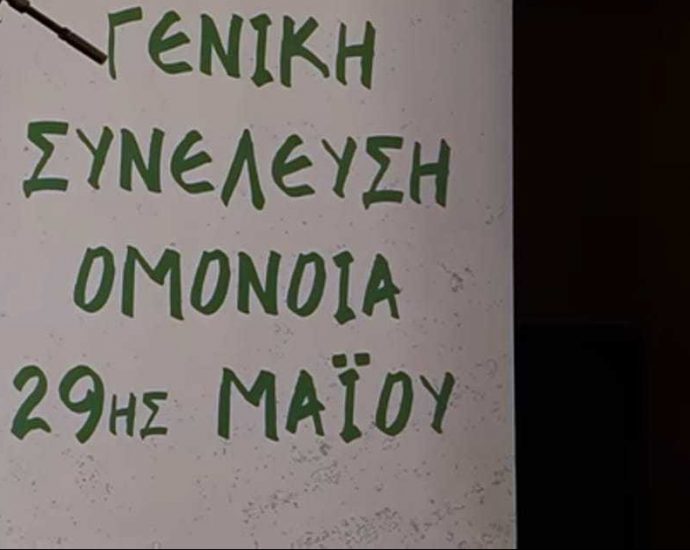 ΓΕΝΙΚΗ
ΣΥΝΕΛΕΥΣΗ
ΟΜΟΝΟΙΑ
29ΗΣ ΜΑΪΟΥ